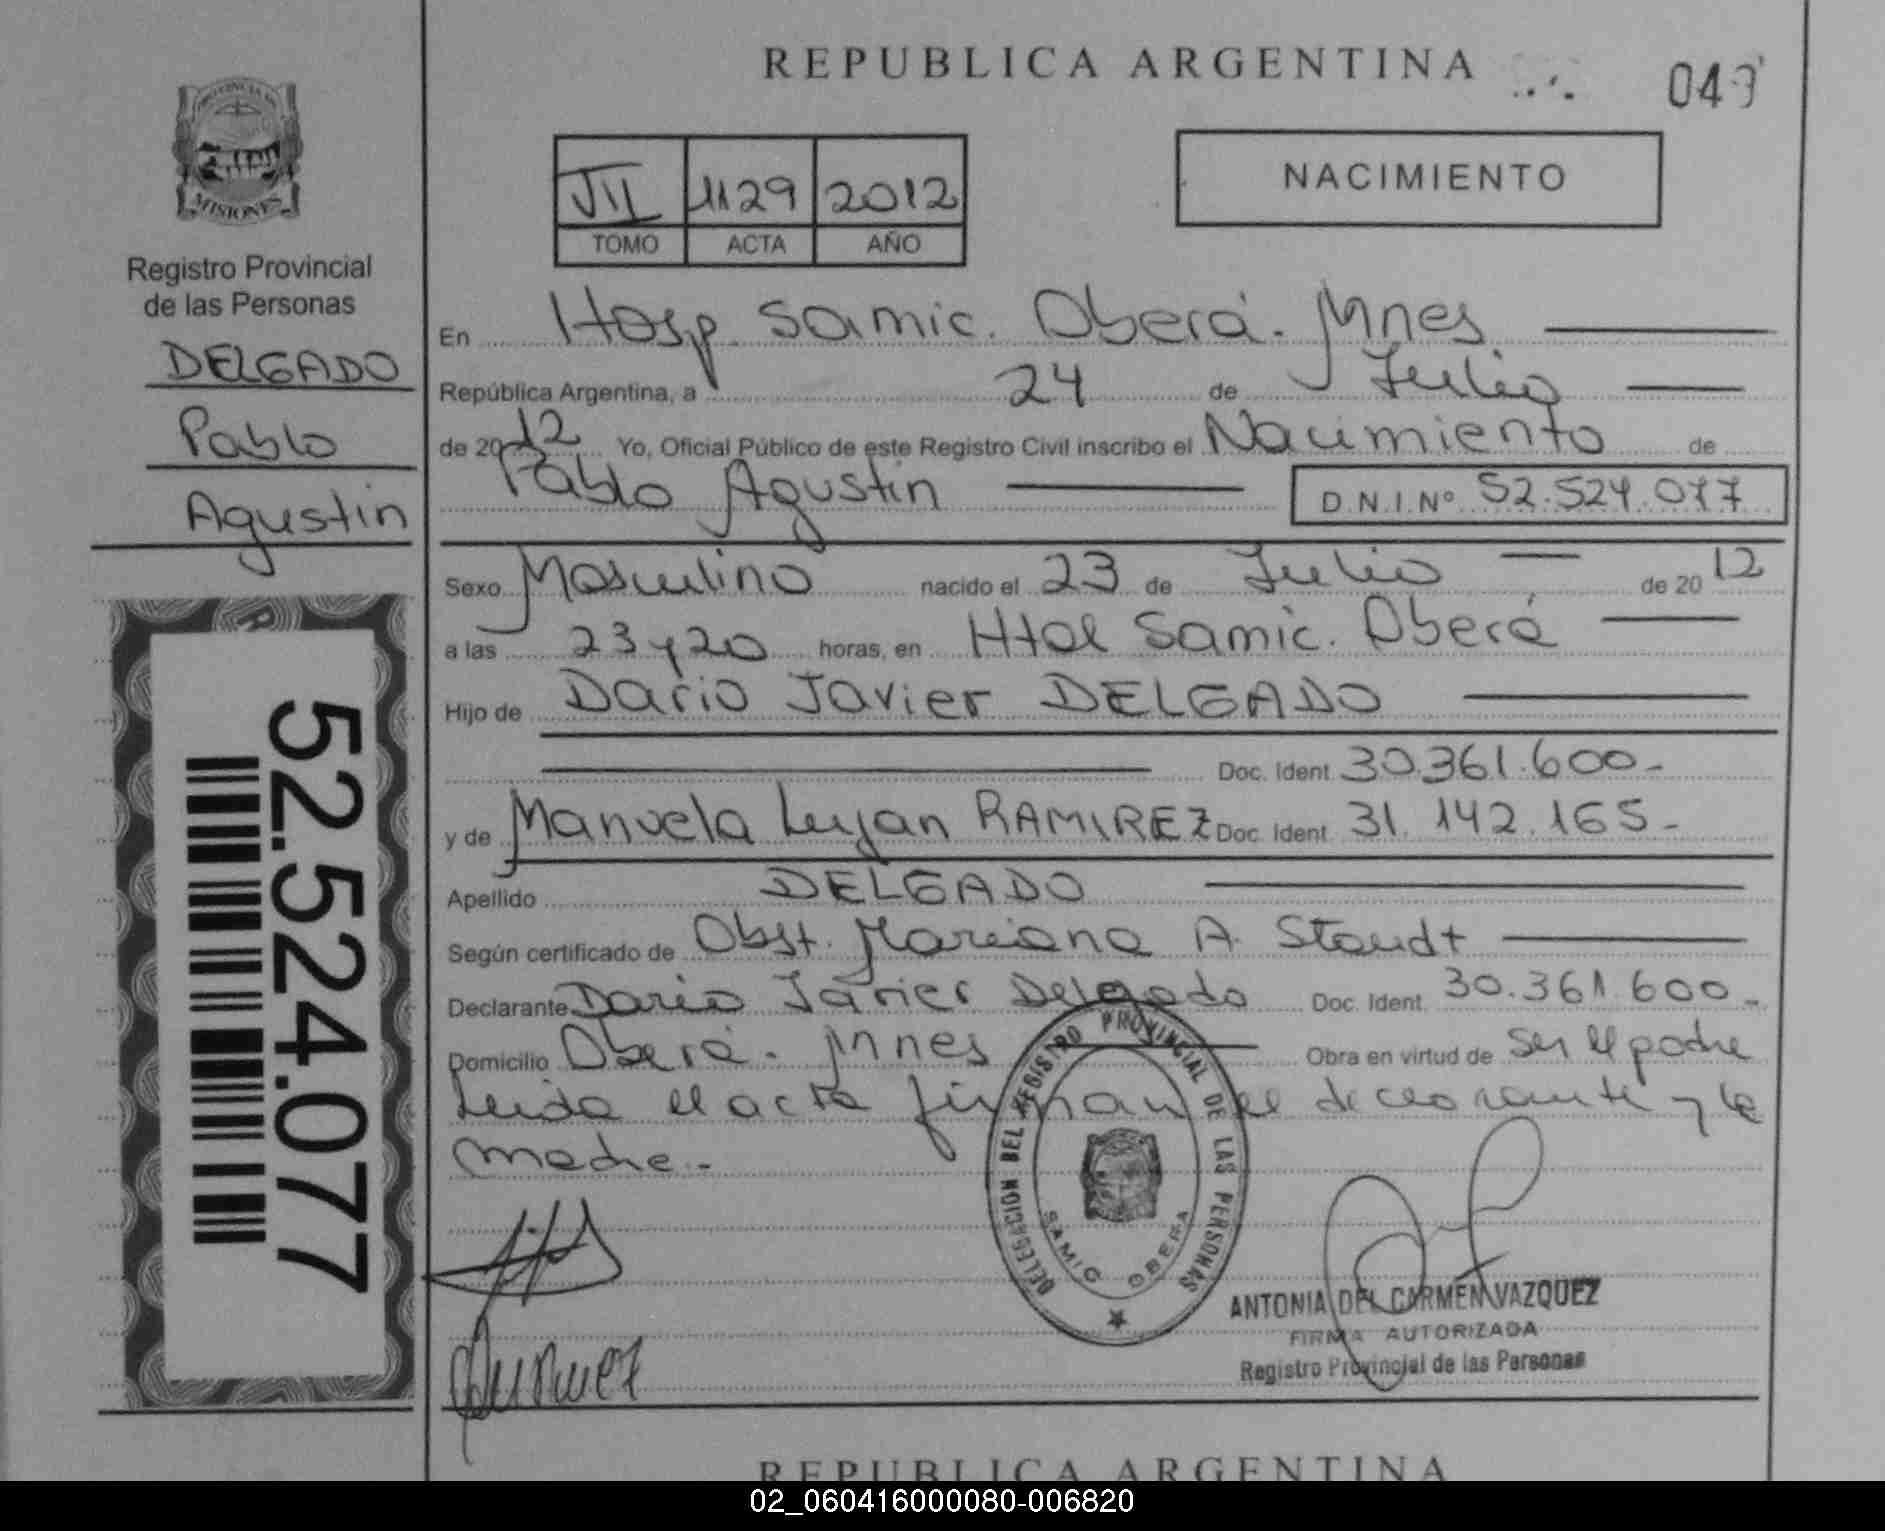 REPUBLICA ARGENTINA
04
PROVINCIA DE
MISIONES
Registro Provincial
de las Personas
DELGADO
Pablo
Agustin
52.524.077
VII 1129 2012
TOMO ACTA AÑO
NACIMIENTO
En Hosp. Samic. Oberá. Mnes
República Argentina, a 24 de Julio
de 2012 Yo, Oficial Público de este Registro Civil inscribo el Nacimiento de
Pablo Agustin D.N.I.Nº 52.524.077
Sexo Masculino nacido el 23 de Julio de 2012
a las 23 y 20 horas, en Htal Samic. Oberá
Hijo de Dario Javier DELGADO
Doc. Ident. 30.361.600-
y de Manuela Lujan RAMIREZ Doc. Ident. 31.142.165-
Apellido DELGADO
Según certificado de Obst. Mariana A. Staudt
Declarante Dario Javier Delgado Doc. Ident. 30.361.600-
Domicilio Oberá. Mnes Obra en virtud de ser el padre
Leida el acta firman el declarante y la
madre.-
DELEGACION DEL REGISTRO PROVINCIAL DE LAS PERSONAS
SAMIC OBERA
ANTONIA DEL CARMEN VAZQUEZ
FIRMA AUTORIZADA
Registro Provincial de las Personas
REPUBLICA ARGENTINA
02_060416000080-006820